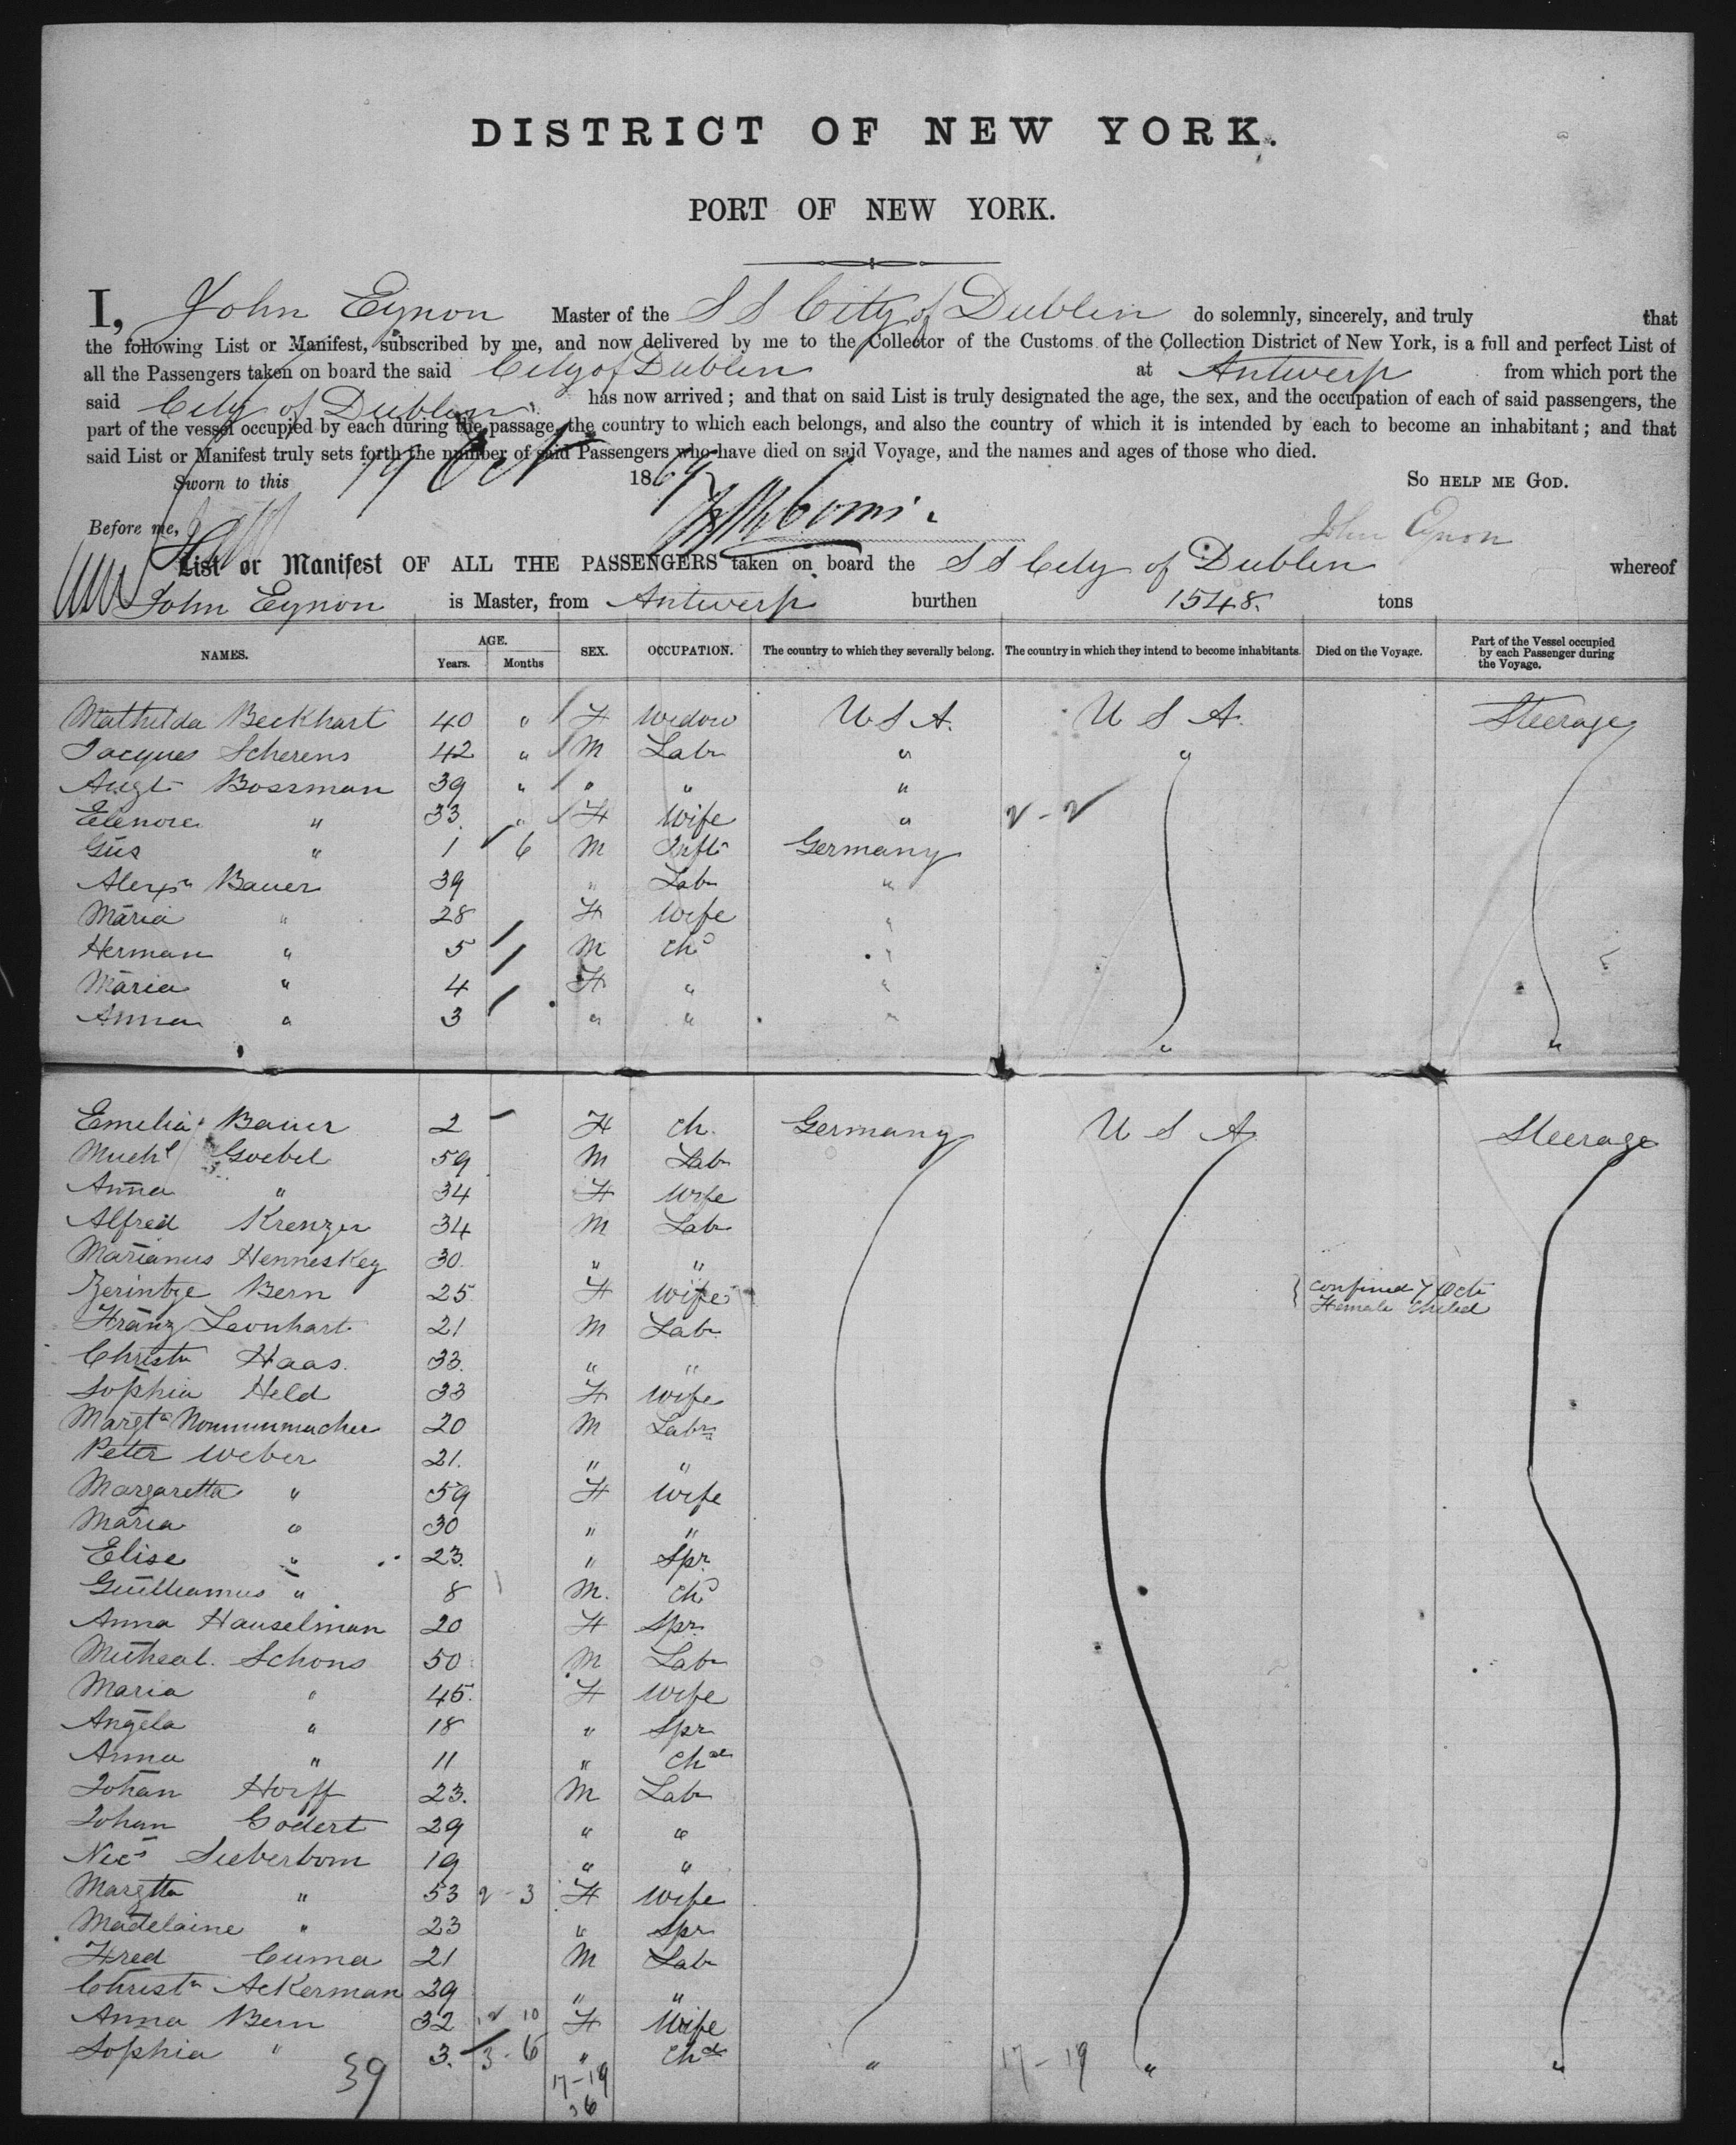 DISTRICT OF NEW YORK.
PORT OF NEW YORK.
I, John Eynon Master of the S S City of Dublin do solemnly, sincerely, and truly that
the following List or Manifest, subscribed by me, and now delivered by me to the Collector of the Customs of the Collection District of New York, is a full and perfect List of
all the Passengers taken on board the said City of Dublin at Antwerp from which port the
said City of Dublin has now arrived; and that on said List is truly designated the age, the sex, and the occupation of each of said passengers, the
part of the vessel occupied by each during the passage, the country to which each belongs, and also the country of which it is intended by each to become an inhabitant; and that
said List or Manifest truly sets forth the number of said Passengers who have died on said Voyage, and the names and ages of those who died.
Sworn to this 19 Oct 1869 So HELP ME GOD.
Before me, John Eynon
List or Manifest OF ALL THE PASSENGERS taken on board the S S City of Dublin whereof
John Eynon is Master, from Antwerp burthen 1548. tons
NAMES. AGE. Years. Months SEX. OCCUPATION. The country to which they severally belong. The country in which they intend to become inhabitants. Died on the Voyage. Part of the Vessel occupied by each Passenger during the Voyage.
Mathilda Beckhart 40 " F Widow U S A. U S A. Steerage
Jacques Scherens 42 " M Labr " "
Augt Bossman 39 " " " "
Elenore " 33 " F Wife " 2 - 2
Gus " 1 6 M Inft Germany
Alexr Bauer 39 " Labr "
Maria " 28 F Wife "
Herman " 5 M chd "
Maria " 4 F " "
Anna " 3 " " " " "
Emelia Bauer 2 F ch. Germany U S A Steerage
Michl Goebel 59 M Labr
Anna " 34 F Wife
Alfred Krenzer 34 M Labr
Marianus Henneskey 30. " "
Zerintze Bern 25 F Wife confined 7 Oct Female Child
Franz Leonhart 21 M Labr
Christn Haas. 33. " "
Sophia Held 33 F Wife
Margta 20 M Labr
Peter Weber 21. " "
Margaretta " 59 F Wife
Maria " 30 " "
Elise " 23. " Spr
Guilliamus " 8 M. chd
Anna Hauselman 20 F Spr.
Micheal. Schons 50 M Labr
Maria " 45. F Wife
Angela " 18 " Spr
Anna " 11 " chd
Johan Horff 23. M Labr
Johan Godert 29 " "
Nics Sieberborn 19 " "
Margtta " 53 2 - 3 F Wife
Madelaine " 23 " Spr
Fred Cuma 21 M Labr
Christn Ackerman 29 " "
Anna Bern 32 10 F Wife
Sophia " 3. 3 - 6 " chd " 17 - 19 " "
39 17-19
36